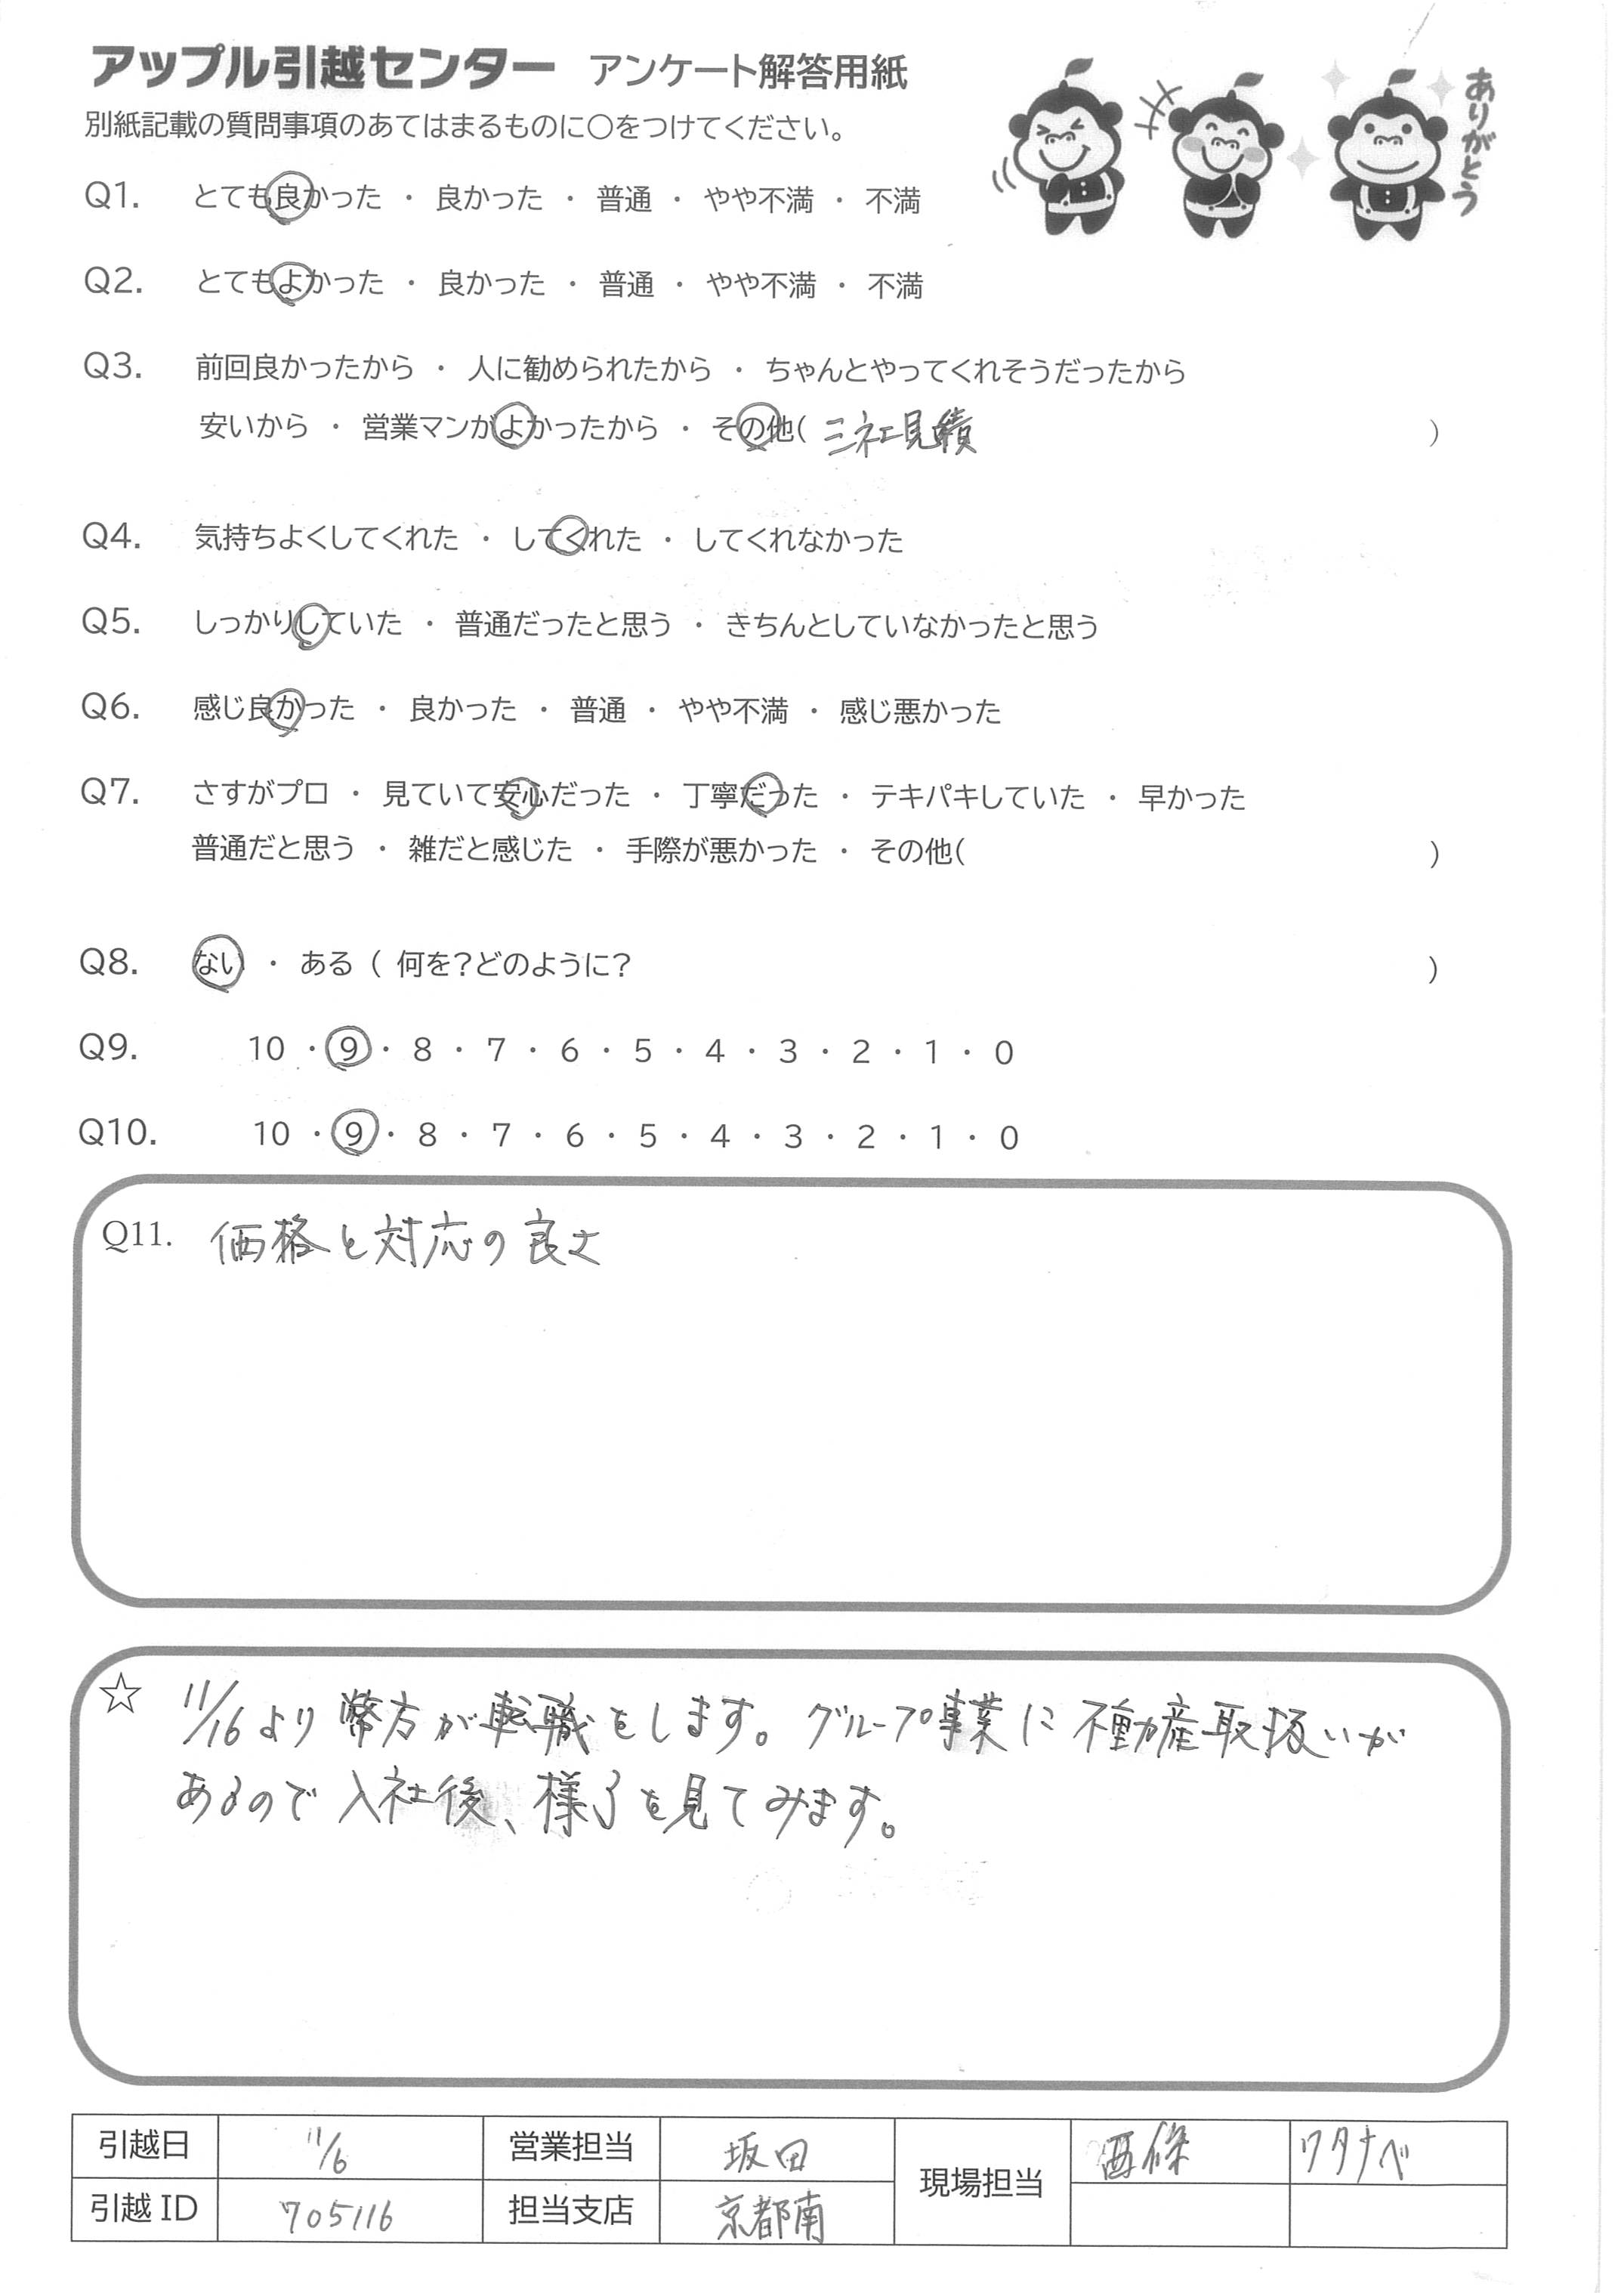 アップル引越センター アンケート解答用紙
別紙記載の質問事項のあてはまるものに○をつけてください。
ありがとう
Q1. とても良かった ・ 良かった ・ 普通 ・ やや不満 ・ 不満
Q2. とてもよかった ・ 良かった ・ 普通 ・ やや不満 ・ 不満
Q3. 前回良かったから ・ 人に勧められたから ・ ちゃんとやってくれそうだったから
安いから ・ 営業マンがよかったから ・ その他( 三社見積 )
Q4. 気持ちよくしてくれた ・ してくれた ・ してくれなかった
Q5. しっかりしていた ・ 普通だったと思う ・ きちんとしていなかったと思う
Q6. 感じ良かった ・ 良かった ・ 普通 ・ やや不満 ・ 感じ悪かった
Q7. さすがプロ ・ 見ていて安心だった ・ 丁寧だった ・ テキパキしていた ・ 早かった
普通だと思う ・ 雑だと感じた ・ 手際が悪かった ・ その他( )
Q8. ない ・ ある ( 何を?どのように? )
Q9. 10 ・ 9 ・ 8 ・ 7 ・ 6 ・ 5 ・ 4 ・ 3 ・ 2 ・ 1 ・ 0
Q10. 10 ・ 9 ・ 8 ・ 7 ・ 6 ・ 5 ・ 4 ・ 3 ・ 2 ・ 1 ・ 0
Q11. 価格と対応の良さ
☆ 11/16より弊方が転職をします。グループ事業に不動産取扱いが
あるので入社後、様子を見てみます。
引越日 11/6 営業担当 坂田 現場担当 西條 ワタナベ
引越ID 705116 担当支店 京都南